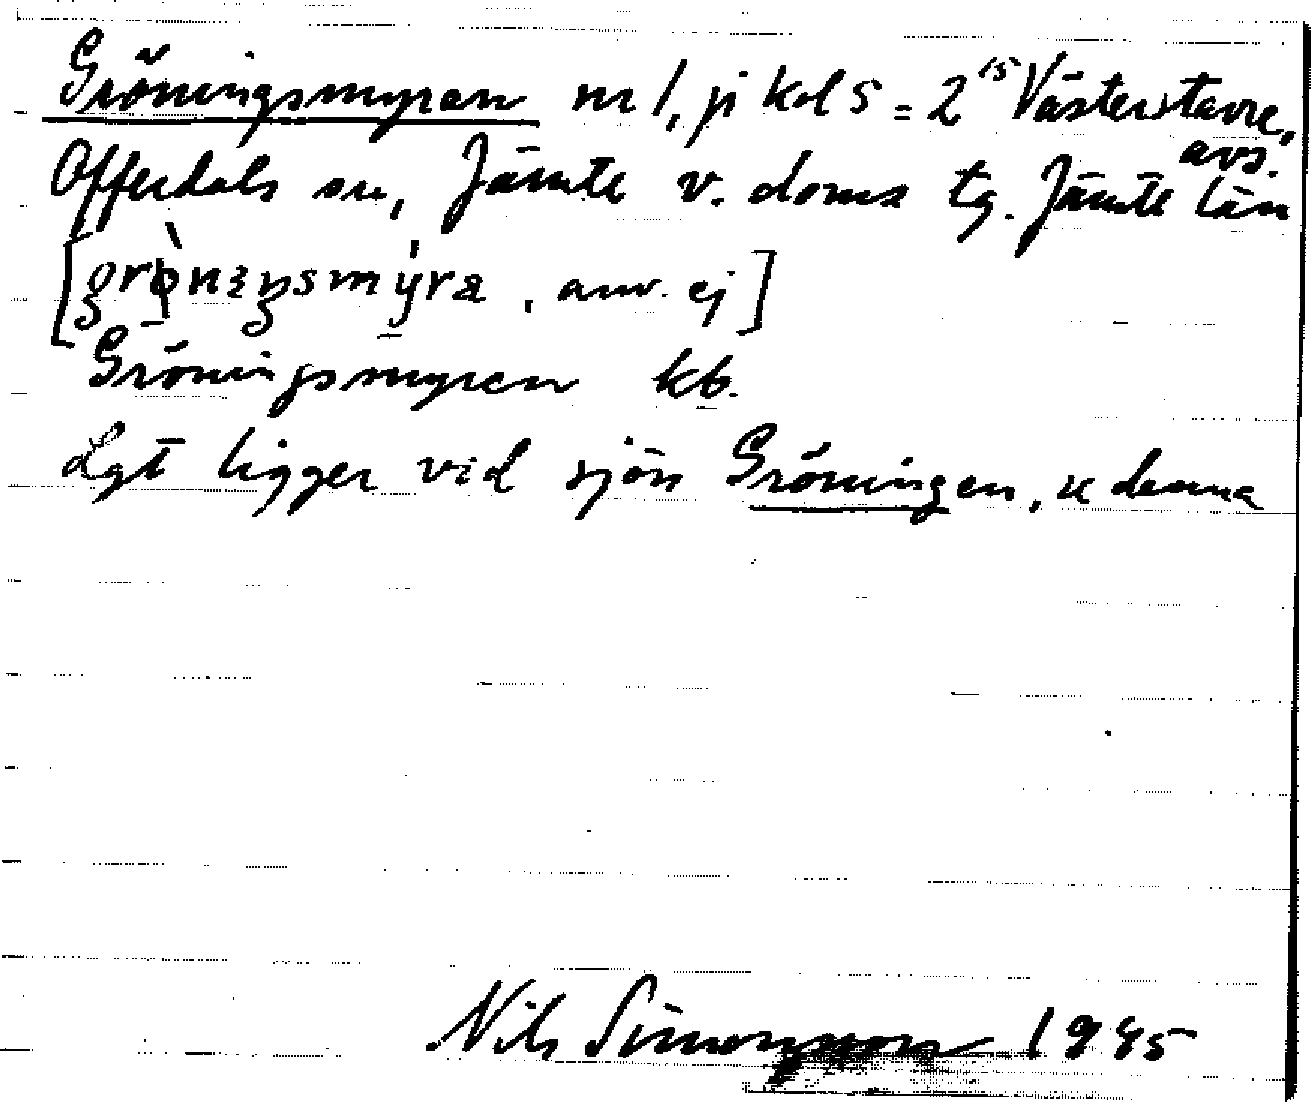 Gröningsmyran nr 1, jr kol 5 = 2¹⁵ Västerstavre, avs.
Offerdals sn, Jämtl v. doms tg. Jämtl län
[grǿneŋsmýra, anv. ej]
Gröningsmyren kb.
Lgt ligger vid sjön Gröningen, se denna
Nils Simonsson 1945